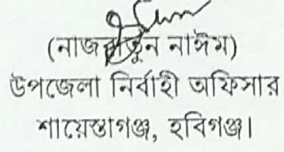 (নাজরাতুন নাঈম)
উপজেলা নির্বাহী অফিসার
শায়েস্তাগঞ্জ, হবিগঞ্জ।